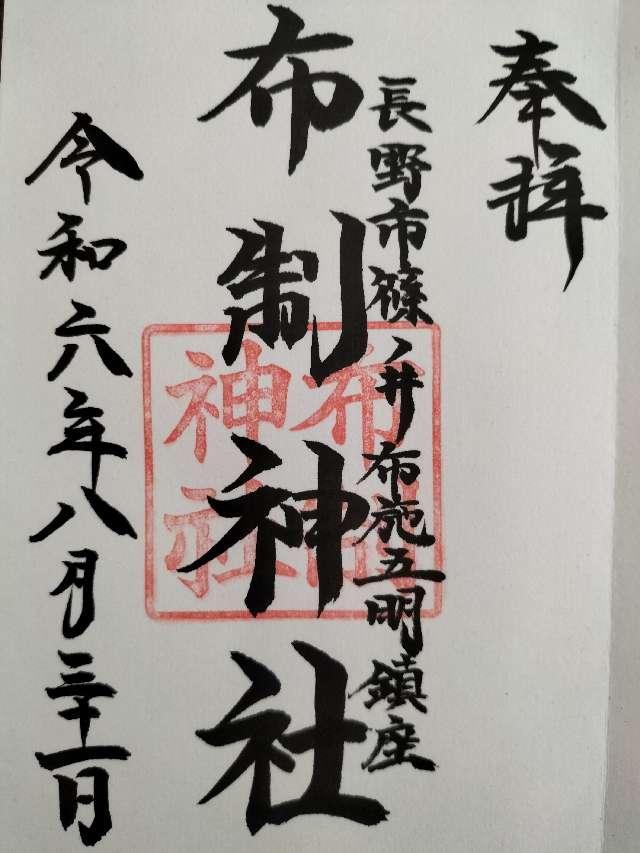 奉拝
長野市篠ノ井布施五明鎮座
布制神社
布制神社
令和六年八月三十一日